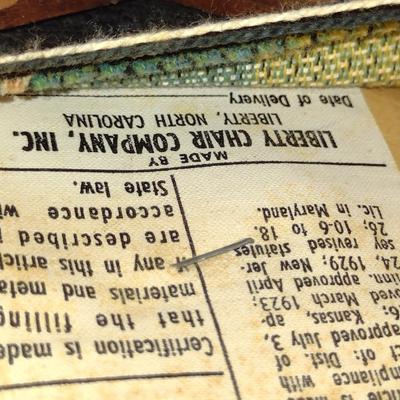 icle is
mpliance with
ct of Dist. of
approved July 3,
6; Kansas, ap-
oved March 1923;
inn. approved April
24, 1929; New Jer-
sey revised statutes
26; 10-6 to 18.
Lic. in Maryland.
Certification is made
that the filling
materials and meta
if any in this articl
are described i
accordance wi
State law.
MADE BY
LIBERTY CHAIR COMPANY, INC.
LIBERTY, NORTH CAROLINA
Date of Delivery